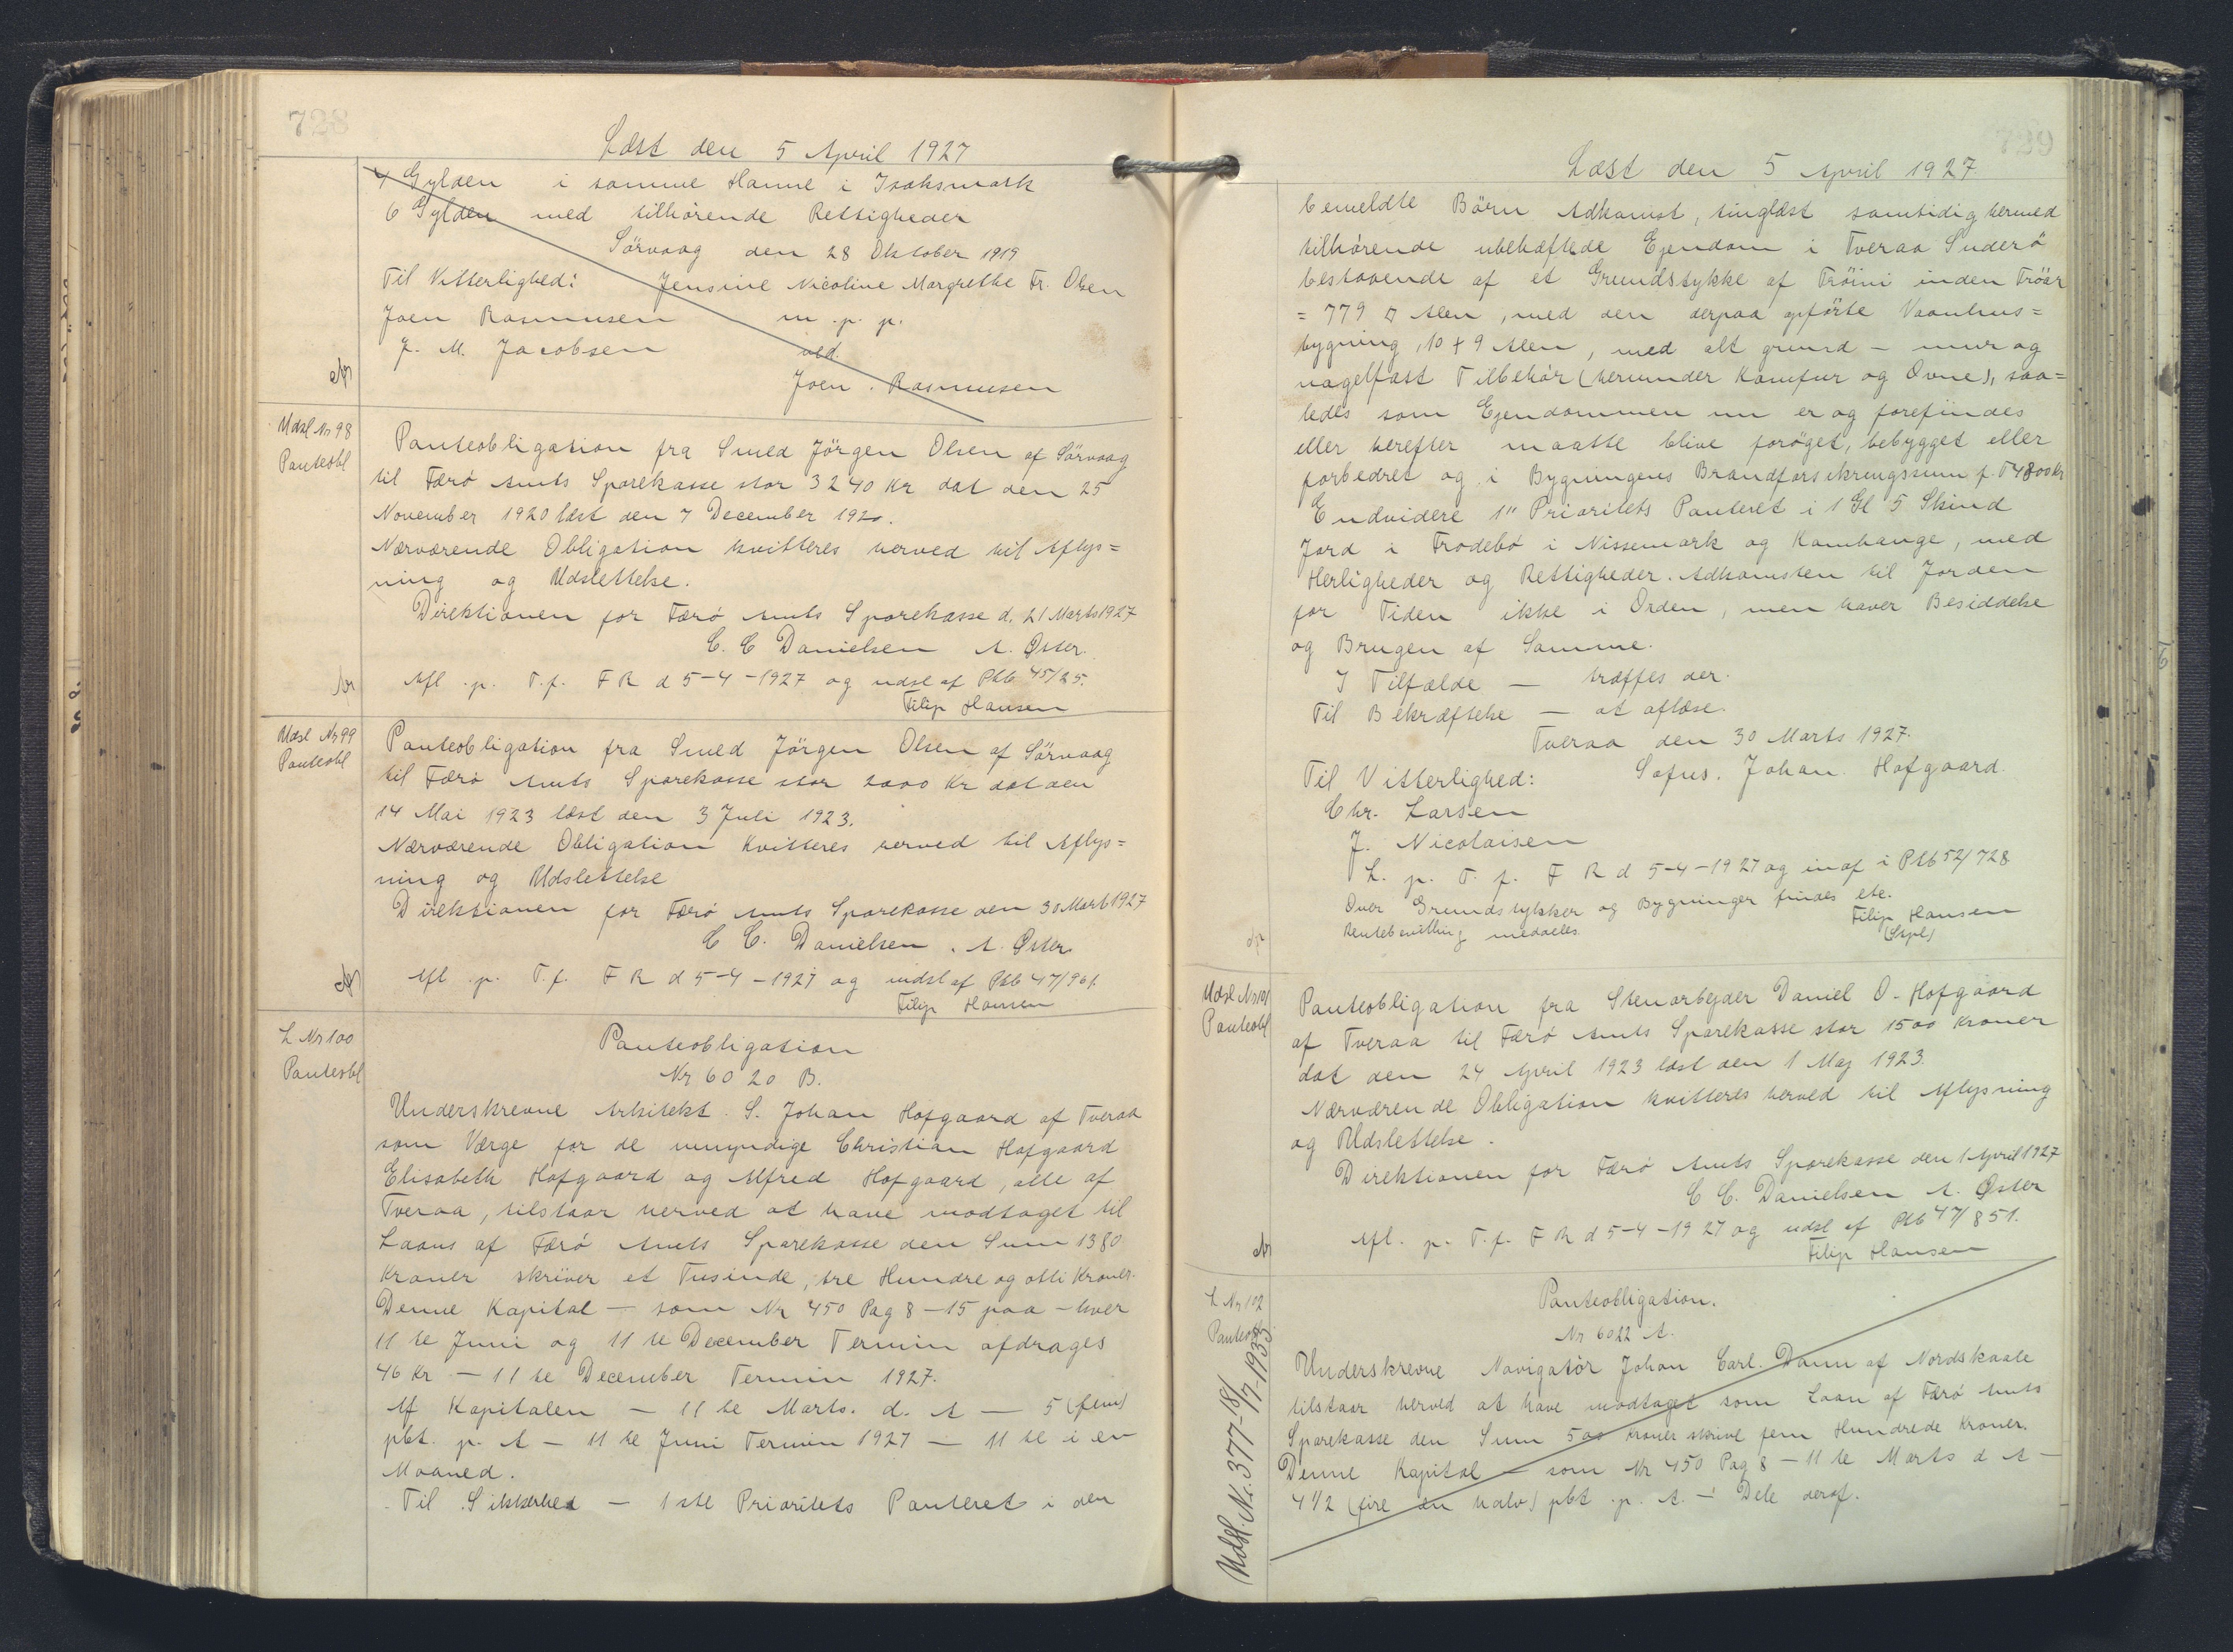 728
Læst den 5 April 1927
4 Gylden i samme Hanne i Isaksmark
6 Gylden med tilhørende Rettigheder
Sörvaag den 28 Oktober 1919
Til Vitterlighed: Jensine Nicoline Margrethe Fr. Olsen
Joen Rasmussen m. p. p.
J. M. Jacobsen ved
Joen Rasmussen
Udsl Nr 98
Panteobl
Panteobligation fra Smed Jörgen Olsen af Sörvaag
til Færø Amts Sparekasse stor 3240 Kr dat den 25
November 1920 læst den 7 December 1920.
Nærværende Obligation kvitteres herved til Aflys=
ning og Udslettelse.
Direktionen for Færø Amts Sparekasse d. 21 Marts 1927
C. C Danielsen A. Øster.
Afl. p. T. f. F R d 5-4-1927 og udsl af Ptb 45/25.
Filip Hansen
Udsl Nr 99
Panteobl
Panteobligation fra Smed Jörgen Olsen af Sörvaag
til Færø Amts Sparekasse stor 2000 Kr dat den
14 Mai 1923 læst den 3 Juli 1923.
Nærværende Obligation Kvitteres herved til Aflys=
ning og Udslettelse
Direktionen for Færø Amts Sparekasse den 30 Marts 1927
C C. Danielsen . A. Øster
Afl. p. T. f. F R d 5-4-1927 og udsl af Ptb 47/961.
Filip Hansen
L Nr 100
Panteobl
Panteobligation
Nr 6020 B.
Underskrevne Arkitekt S. Johan Hofgaard af Tveraa
som Værge for de umyndige Christian Hofgaard
Elisabeth Hofgaard og Alfred Hofgaard, alle af
Tveraa, tilstaar herved at have modtaget til
Laans af Færø Amts Sparekasse den Sum 1380
Kroner skriver et Tusinde, tre Hundre og otti Kroner.
Denne Kapital — som Nr 450 Pag 8-15 paa - hver
11 te Juni og 11 te December Termin afdrages
46 Kr — 11 te December Termin 1927.
Af Kapitalen — 11 te Marts. d. A — 5 (fem)
pkt. p. A — 11 te Juni Termin 1927 — 11 te i en
Maaned.
Til Sikkerhed — 1 ste Prioritets Panteret i den
729
Læst den 5 April 1927.
bemeldte Börn Adkomst, tinglæst samtidig hermed
tilhørende ubehæftede Ejendom i Tveraa Suderö
bestaaende af et Grundstykke af Tröini inden Tröar
= 779 □ Alen, med den derpaa opförte Vaanhus=
bygning, 10 + 9 Alen, med alt grund - mur og
nagelfast Tilbehör (herunder Komfur og Ovne), saa=
ledes som Ejendommen nu er og forefindes
eller herefter maatte blive forøget, bebygget eller
forbedret og i Bygningens Brandforsikringssum f. T 4800 Kr
Endvidere 1" Prioritets Panteret i 1 Gl 5 Skind
Jord i Frodebø i Nissemark og Kamhauge, med
Herligheder og Rettigheder. Adkomsten til Jorden
for Tiden ikke i Orden, men haver Besiddelse
og Brugen af Samme.
I Tilfælde — træffes der.
Til Bekræftelse — at aflæse.
Tveraa den 30 Marts 1927.
Til Vitterlighed: Sofus. Johan. Hofgaard.
Chr. Larsen
J. Nicolaisen
L. p. T. f. F R d 5-4-1927 og indf i Ptb 52/728
Over Grundstykker og Bygninger findes etc.
Rentebevilling meddeles. Filip Hansen
(Expl)
Udsl Nr 101
Panteobl
Panteobligation fra Stenarbejder Daniel O. Hofgaard
af Tveraa til Færø Amts Sparekasse stor 1500 Kroner
dat den 24 April 1923 læst den 1 Maj 1923.
Nærværende Obligation kvitteres herved til Aflysning
og Udslettelse.
Direktionen for Færø Amts Sparekasse den 1 April 1927
C C. Danielsen A. Øster
Afl. p. T. f. F R d 5-4-1927 og udsl af Ptb 47/851.
Filip Hansen
L Nr 102
Panteobl
Udsl. Nr. 377-18/7-1933
Panteobligation.
Nr 6022 A.
Underskrevne Navigatör Johan Carl. Dam af Nordskaale
tilstaar herved at have modtaget som Laan af Færø Amts
Sparekasse den Sum 500 kroner skrive fem Hundrede Kroner.
Denne Kapital — som Nr 450 Pag 8 — 11 te Marts d A —
4 1/2 (fire en halv) pkt. p. A. - Dele deraf.